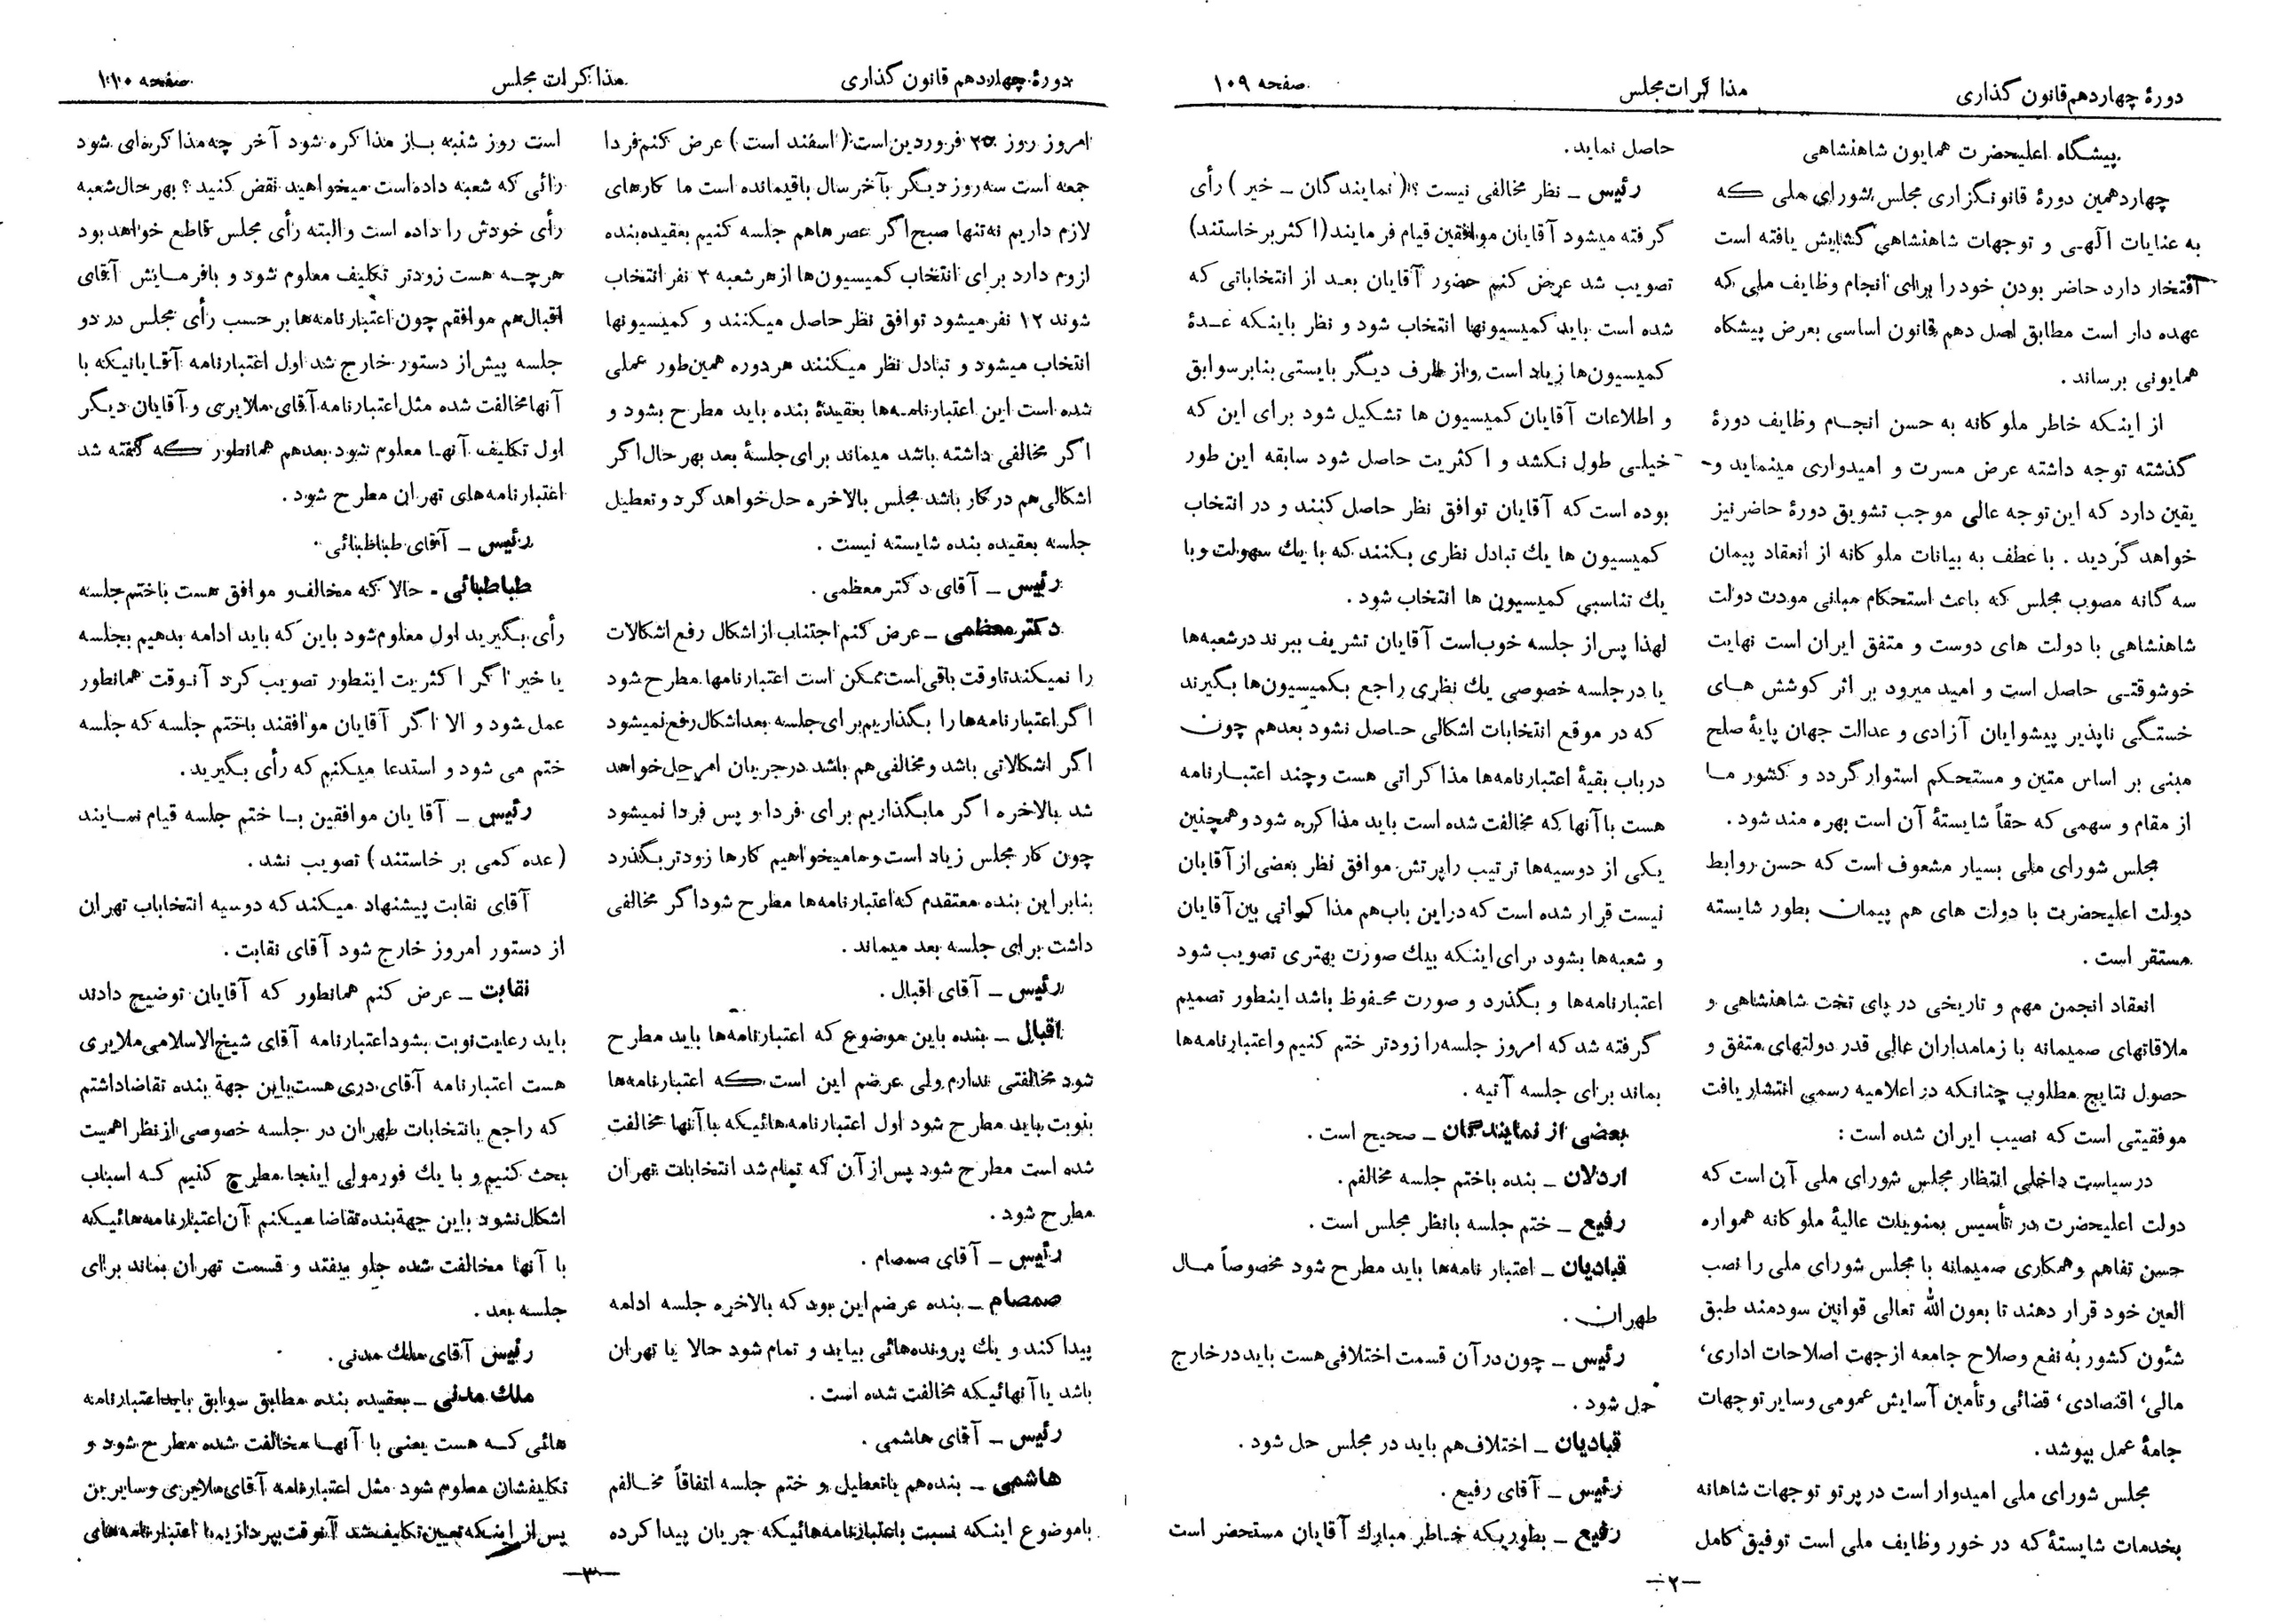 دورهٔ چهاردهم قانون گذاری
مذاکرات مجلس
صفحه ۱۰۹
پیشگاه اعلیحضرت همایون شاهنشاهی
چهاردهمین دورهٔ قانونگزاری مجلس شورای ملی که
به عنایات الهی و توجهات شاهنشاهی گشایش یافته است
افتخار دارد حاضر بودن خود را برای انجام وظایف ملی که
عهده دار است مطابق اصل دهم قانون اساسی بعرض پیشگاه
همایونی برساند .
از اینکه خاطر ملوکانه به حسن انجام وظایف دورهٔ
گذشته توجه داشته عرض مسرت و امیدواری مینماید و
یقین دارد که این توجه عالی موجب تشویق دورهٔ حاضر نیز
خواهد گردید . با عطف به بیانات ملوکانه از انعقاد پیمان
سه گانه مصوب مجلس که باعث استحکام مبانی مودت دولت
شاهنشاهی با دولت های دوست و متفق ایران است نهایت
خوشوقتی حاصل است و امید میرود بر اثر کوشش های
خستگی ناپذیر پیشوایان آزادی و عدالت جهان پایهٔ صلح
مبنی بر اساس متین و مستحکم استوار گردد و کشور ما
از مقام و سهمی که حقاً شایستهٔ آن است بهره مند شود .
مجلس شورای ملی بسیار مشعوف است که حسن روابط
دولت اعلیحضرت با دولت های هم پیمان بطور شایسته
مستقر است .
انعقاد انجمن مهم و تاریخی در پای تخت شاهنشاهی و
ملاقاتهای صمیمانه با زمامداران عالی قدر دولتهای متفق و
حصول نتایج مطلوب چنانکه در اعلامیه رسمی انتشار یافت
موفقیتی است که نصیب ایران شده است :
در سیاست داخلی انتظار مجلس شورای ملی آن است که
دولت اعلیحضرت در تأسیس بمنویات عالیهٔ ملوکانه همواره
حسن تفاهم و همکاری صمیمانه با مجلس شورای ملی را نصب
العین خود قرار دهند تا بعون الله تعالی قوانین سودمند طبق
شئون کشور به نفع و صلاح جامعه از جهت اصلاحات اداری،
مالی، اقتصادی، قضائی و تأمین آسایش عمومی و سایر توجهات
جامهٔ عمل بپوشد .
مجلس شورای ملی امیدوار است در پرتو توجهات شاهانه
بخدمات شایستهٔ که در خور وظایف ملی است توفیق کامل
حاصل نماید .
رئیس ــ نظر مخالفی نیست ؟ ( نمایندگان ــ خیر ) رأی
گرفته میشود آقایان موافقین قیام فرمایند (اکثر برخاستند)
تصویب شد عرض کنم حضور آقایان بعد از انتخاباتی که
شده است باید کمیسیونها انتخاب شود و نظر باینکه عدهٔ
کمیسیون‌ها زیاد است و از طرف دیگر بایستی بنابر سوابق
و اطلاعات آقایان کمیسیون ها تشکیل شود برای این که
خیلی طول نکشد و اکثریت حاصل شود سابقه این طور
بوده است که آقایان توافق نظر حاصل کنند و در انتخاب
کمیسیون ها یك تبادل نظری بکنند که با یك سهولت و با
یك تناسبی کمیسیون ها انتخاب شود .
لهذا پس از جلسه خوب است آقایان تشریف ببرند در شعبه‌ها
یا در جلسه خصوصی یك نظری راجع بکمیسیون‌ها بگیرند
که در موقع انتخابات اشکالی حاصل نشود بعد هم چون
در باب بقیهٔ اعتبارنامه‌ها مذاکراتی هست و چند اعتبارنامه
هست با آنها که مخالفت شده است باید مذاکره شود و همچنین
یکی از دوسیه‌ها ترتیب راپرتش موافق نظر بعضی از آقایان
نیست قرار شده است که در این باب هم مذاکراتی بین آقایان
و شعبه‌ها بشود برای اینکه بیك صورت بهتری تصویب شود
اعتبارنامه‌ها و بگذرد و صورت محفوظ باشد اینطور تصمیم
گرفته شد که امروز جلسه را زودتر ختم کنیم و اعتبارنامه‌ها
بماند برای جلسه آتیه .
بعضی از نمایندگان ــ صحیح است .
اردلان ــ بنده باختم جلسه مخالفم .
رفیع ــ ختم جلسه بانظر مجلس است .
قبادیان ــ اعتبار نامه‌ها باید مطرح شود مخصوصاً مال
طهران .
رئیس ــ چون در آن قسمت اختلافی هست باید در خارج
حل شود .
قبادیان ــ اختلاف هم باید در مجلس حل شود .
رئیس ــ آقای رفیع .
رفیع ــ بطوریکه خاطر مبارك آقایان مستحضر است
ــ۲ــ
دورهٔ چهاردهم قانون گذاری
مذاکرات مجلس
صفحه ۱۱۰
امروز روز ۲۵ فروردین است ( اسفند است ) عرض کنم فردا
جمعه است سه روز دیگر بآخر سال باقیمانده است ما کارهای
لازم داریم نه تنها صبح اگر عصرها هم جلسه کنیم بعقیده بنده
لزوم دارد برای انتخاب کمیسیون‌ها از هر شعبه ۲ نفر انتخاب
شوند ۱۲ نفر میشود توافق نظر حاصل میکنند و کمیسیونها
انتخاب میشود و تبادل نظر میکنند هر دوره همین طور عملی
شده است این اعتبارنامه‌ها بعقیدهٔ بنده باید مطرح بشود و
اگر مخالفی داشته باشد میماند برای جلسهٔ بعد بهر حال اگر
اشکالی هم در کار باشد مجلس بالاخره حل خواهد کرد و تعطیل
جلسه بعقیده بنده شایسته نیست .
رئیس ــ آقای دکتر معظمی .
دکتر معظمی ــ عرض کنم اجتناب از اشکال رفع اشکالات
را نمیکند تا وقت باقی است ممکن است اعتبارنامها مطرح شود
اگر اعتبارنامه‌ها را بگذاریم برای جلسه بعد اشکال رفع نمیشود
اگر اشکالاتی باشد و مخالفی هم باشد در جریان امر حل خواهد
شد بالاخره اگر ما بگذاریم برای فردا و پس فردا نمیشود
چون کار مجلس زیاد است و ما میخواهیم کارها زودتر بگذرد
بنابراین بنده معتقدم که اعتبارنامه‌ها مطرح شود اگر مخالفی
داشت برای جلسه بعد میماند .
رئیس ــ آقای اقبال .
اقبال ــ بنده باین موضوع که اعتبارنامه‌ها باید مطرح
شود مخالفتی ندارم ولی عرضم این است که اعتبارنامه‌ها
بنوبت باید مطرح شود اول اعتبارنامه‌هائیکه با آنها مخالفت
شده است مطرح شود پس از آن که تمام شد انتخابات تهران
مطرح شود .
رئیس ــ آقای صمصام .
صمصام ــ بنده عرضم این بود که بالاخره جلسه ادامه
پیدا کند و یك پرونده‌هائی بیاید و تمام شود حالا یا تهران
باشد یا آنهائیکه مخالفت شده است .
رئیس ــ آقای هاشمی .
هاشمی ــ بنده هم باتعطیل و ختم جلسه اتفاقاً مخالفم
باموضوع اینکه نسبت باعتبارنامه‌هائیکه جریان پیدا کرده
است روز شنبه باز مذاکره شود آخر چه مذاکره‌ای شود
رائی که شعبه داده است میخواهید نقض کنید ؟ بهر حال شعبه
رأی خودش را داده است و البته رأی مجلس قاطع خواهد بود
هرچه هست زودتر تکلیف معلوم شود و بافرمایش آقای
اقبال هم موافقم چون اعتبارنامه‌ها بر حسب رأی مجلس در دو
جلسه پیش از دستور خارج شد اول اعتبارنامه آقایانیکه با
آنها مخالفت شده مثل اعتبارنامه آقای ملایری و آقایان دیگر
اول تکلیف آنها معلوم شود بعد هم همانطور که گفته شد
اعتبارنامه‌های تهران مطرح شود .
رئیس ــ آقای طباطبائی .
طباطبائی ـ حالا که مخالف و موافق هست باختم جلسه
رأی بگیرید اول معلوم شود باین که باید ادامه بدهیم بجلسه
یا خیر اگر اکثریت اینطور تصویب کرد آنوقت همانطور
عمل شود و الا اگر آقایان موافقند باختم جلسه که جلسه
ختم می شود و استدعا میکنم که رأی بگیرید .
رئیس ــ آقایان موافقین با ختم جلسه قیام نمایند
( عده کمی برخاستند ) تصویب نشد .
آقای نقابت پیشنهاد میکند که دوسیه انتخابات تهران
از دستور امروز خارج شود آقای نقابت .
نقابت ــ عرض کنم همانطور که آقایان توضیح دادند
باید رعایت نوبت بشود اعتبارنامه آقای شیخ الاسلامی ملایری
هست اعتبارنامه آقای دری هست باین جهة بنده تقاضا داشتم
که راجع بانتخابات طهران در جلسه خصوصی از نظر اهمیت
بحث کنیم و با یك فورمولی اینجا مطرح کنیم که اسباب
اشکال نشود باین جهة بنده تقاضا میکنم آن اعتبارنامه‌هائیکه
با آنها مخالفت شده جلو بیفتد و قسمت تهران بماند برای
جلسه بعد .
رئیس آقای ملك مدنی .
ملك مدنی ــ بعقیده بنده مطابق سوابق باید اعتبارنامه
هائی که هست یعنی با آنها مخالفت شده مطرح شود و
تکلیفشان معلوم شود مثل اعتبارنامه آقای ملایری و سایرین
پس از اینکه تعیین تکلیف شد آنوقت بپردازیم با اعتبارنامه‌های
ــ۳ــ